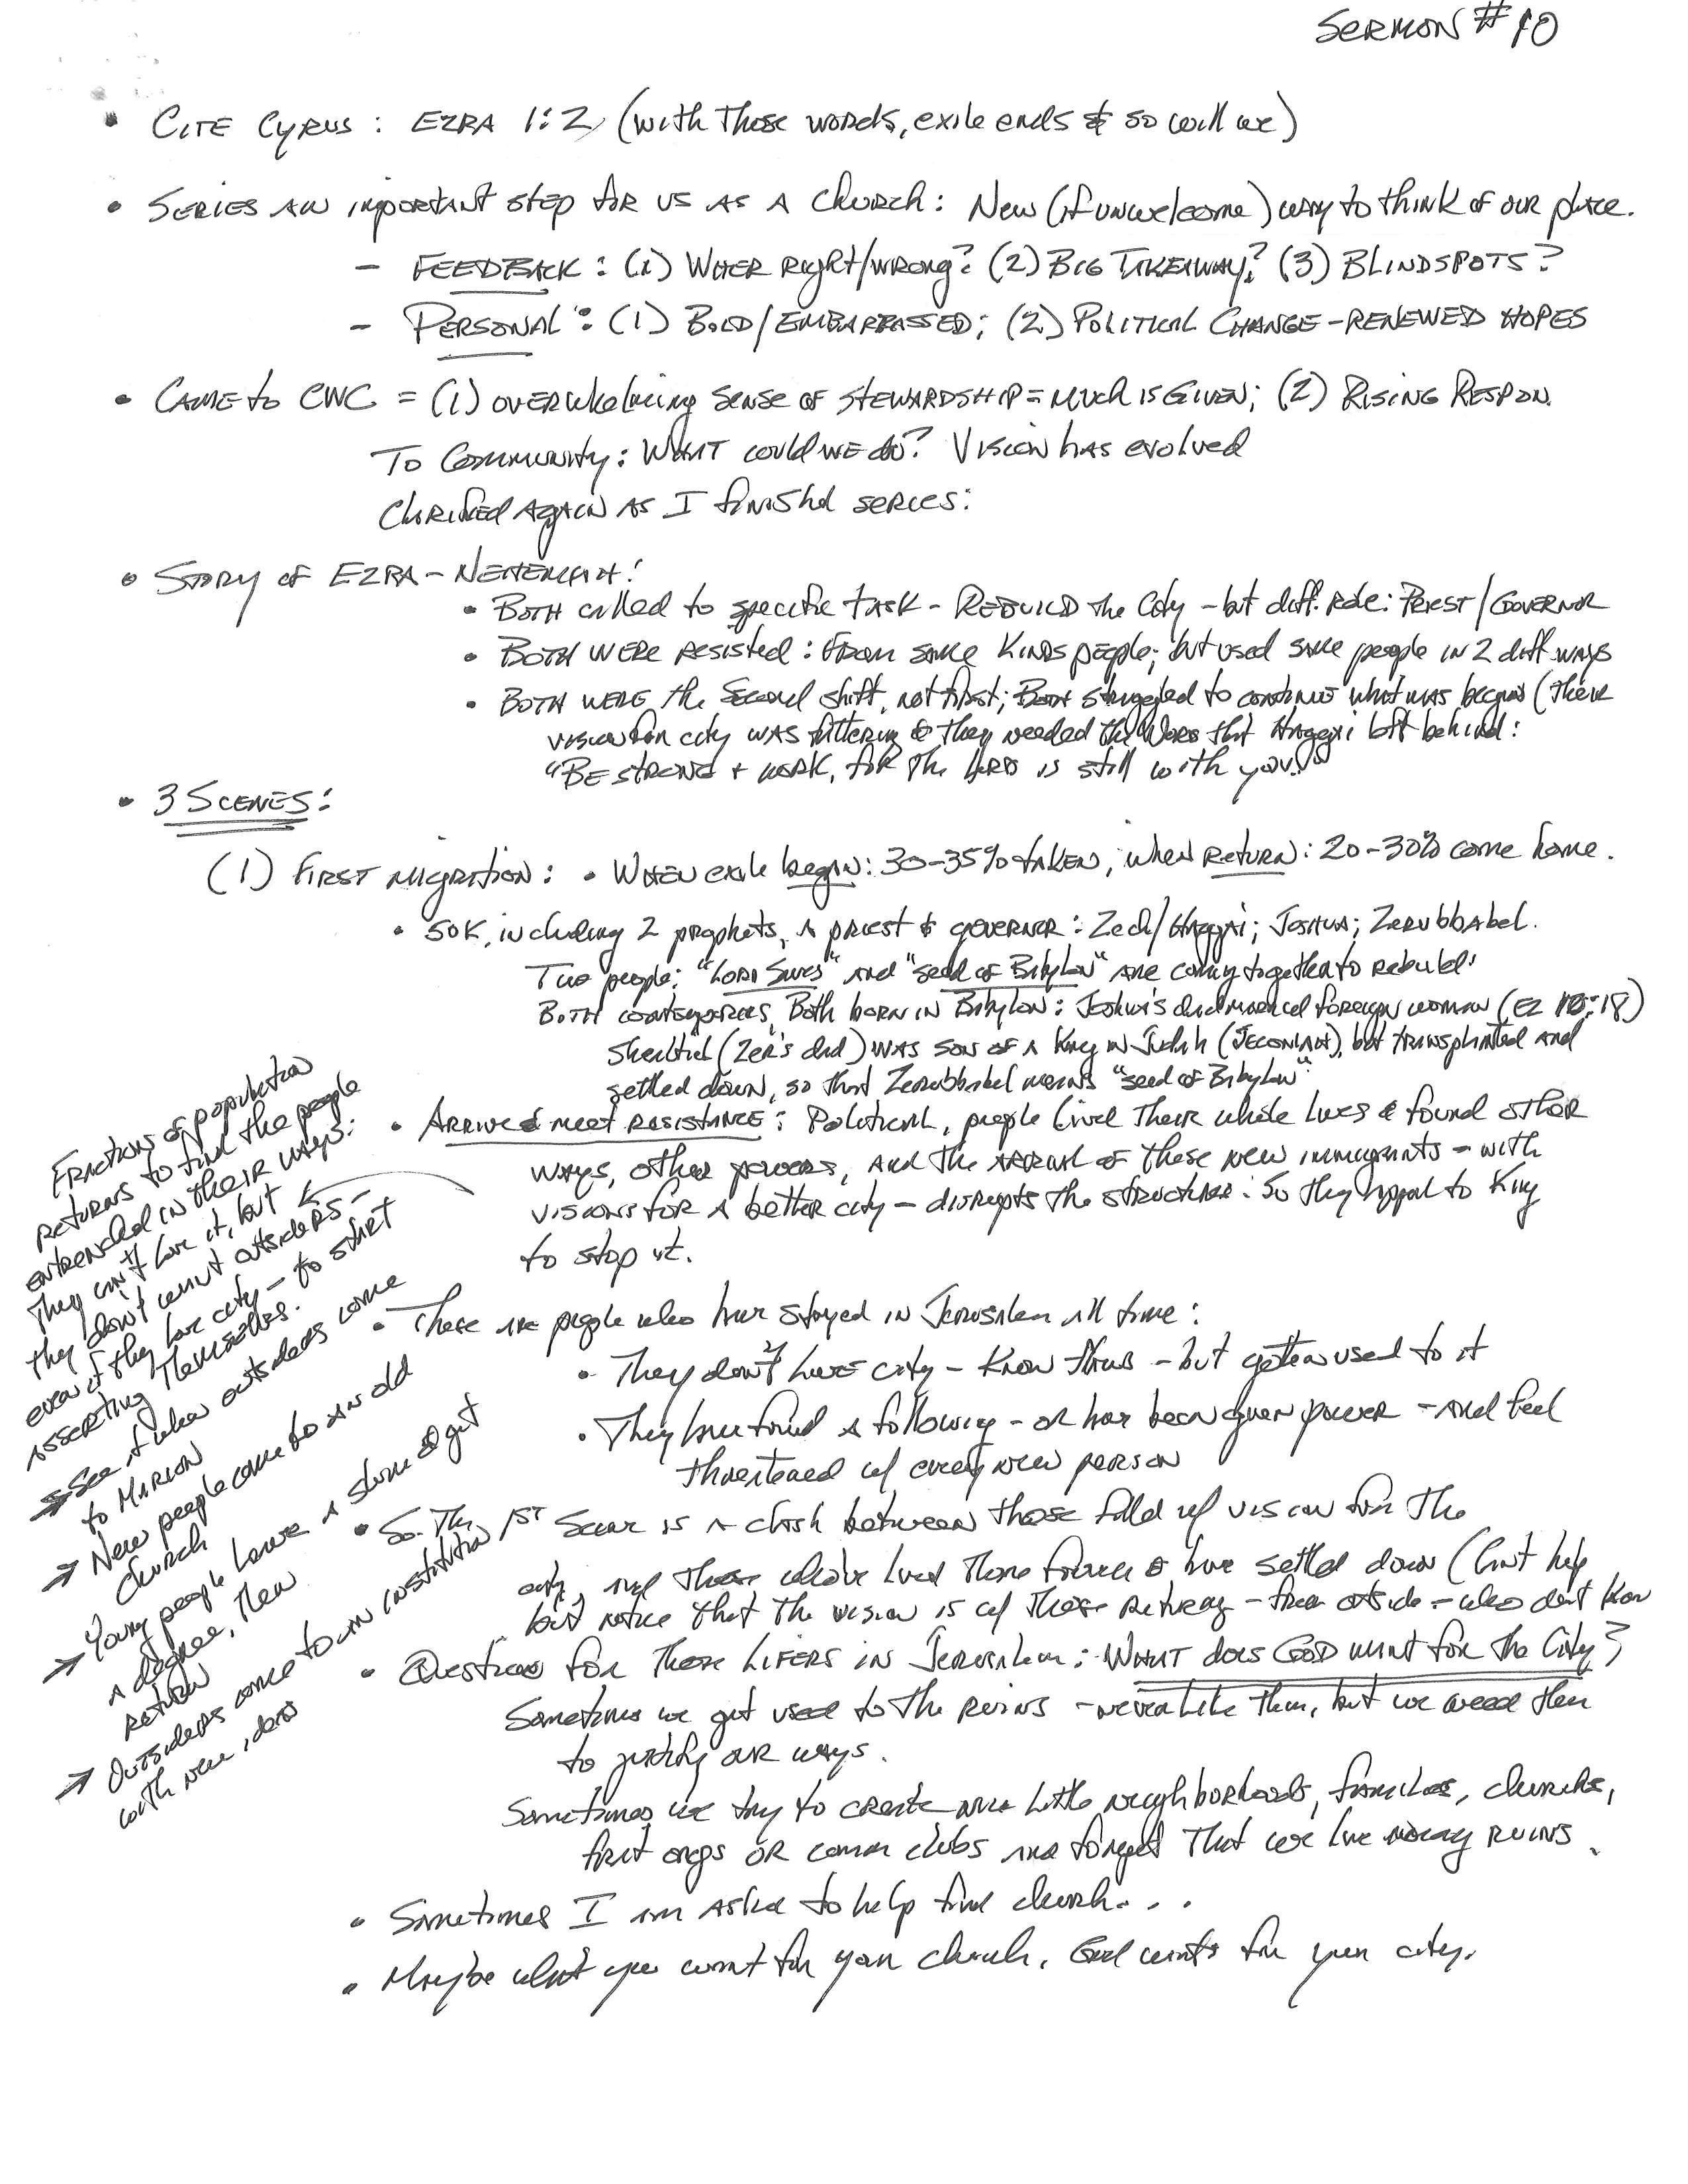 SERMON #10
• CITE CYRUS: EZRA 1:2, (with Those words, exile ends & so will we)
• SERIES AN important step for us AS A Church: New (if unwelcome) way to think of our place.
– FEEDBACK: (1) WHER Right/wrong? (2) BIG TAKEAWAY? (3) BLINDSPOTS?
– PERSONAL: (1) BOLD/EMBARRASSED; (2) POLITICAL CHANGE – RENEWED HOPES
• CAME to CWC = (1) overwhelming sense of STEWARDSHIP = much is GIVEN; (2) RISING RESPON.
To Community: WHAT could we do? Vision has evolved
Clarified AGAIN AS I finished series:
• STORY of EZRA – NEHEMIAH:
• BOTH called to specific task – REBUILD the City – but diff. Role: PRIEST/GOVERNOR
• BOTH WERE RESISTED: From same KINDS people; but used same people in 2 diff ways
• BOTH WERE the Second shift, not first; BOTH struggled to continue what was begun (their
vision for city WAS faltering & they needed the Word that Haggai left behind:
"BE STRONG + WORK, for the LORD is still with you."
• 3 SCENES:
(1) FIRST MIGRATION: • WHEN exile begin: 30-35% taken, when RETURN: 20-30% come home.
• 50K, including 2 prophets, A priest & governor: Zech/Haggai; JOSHUA; ZERUBBABEL.
Two people: "LORD Saves" and "seed of Babylon" are coming together to rebuild:
BOTH contemporaries, Both born in Babylon: Joshua's dad married foreign woman (EZ 10:18)
Shealtiel (Zer's dad) WAS son of A King in Judah (JECONIAH), but transplanted and
settled down, so that Zerubbabel means "seed of Babylon"
• ARRIVE & meet RESISTANCE: Political, people lived Their whole lives & found other
ways, other powers, and the arrival of these new immigrants – with
visions for A better city – disrupts the structure: So they appeal to King
to stop it.
• These are people who have stayed in Jerusalem all time:
• They don't love city – Know flaws – but gotten used to it
• They have found A following – or has been given power – and feel
threatened w/ every new person
• So. The 1ST Scene is A clash between those filled w/ vision for the
city, and those who've lived there forever & have settled down (can't help
but notice that the vision is w/ those returning – from outside – who don't know
• Questions for those LIFERS in Jerusalem: WHAT does GOD want for the City?
Sometimes we get used to the ruins – never like them, but we need them
to justify our ways.
Sometimes we try to create nice little neighborhoods, families, churches,
frat orgs OR comm clubs and forget That we live among RUINS.
• Sometimes I am asked to help find church. . .
• Maybe what you want for your church, God wants for your city.
FRACTIONS of population
RETURNS to find the people
entrenched in their ways:
They can't love it, but
they don't want outsiders –
even if they love city – to start
ASSERTING Themselves.
→ See it when outsiders come
to MARION
→ New people come to an old
church
→ Young people leave A & get
A degree, then
RETURN
→ Outsiders come to an institution
with new ideas